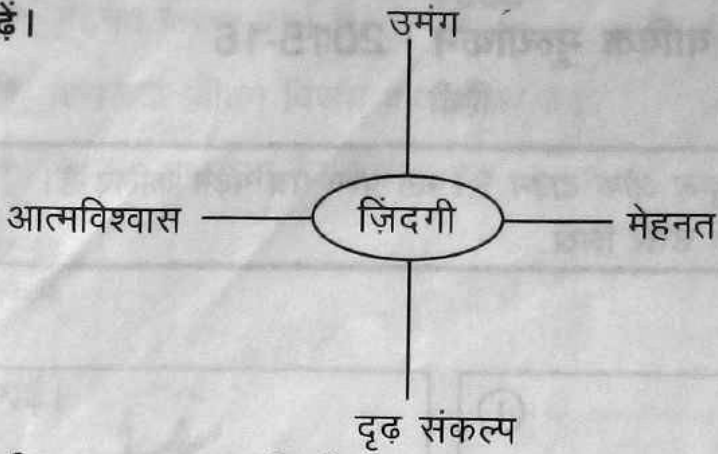 ढ़ें।
उमंग
आत्मविश्वास
ज़िंदगी
मेहनत
दृढ़ संकल्प